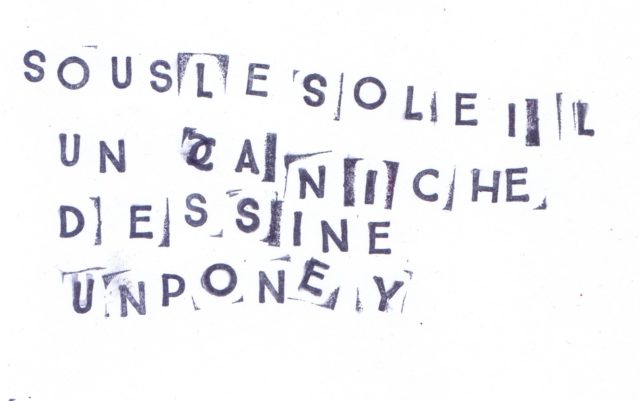 SOUS LE SOLEIL
UN CANICHE
DESSINE
UN PONEY